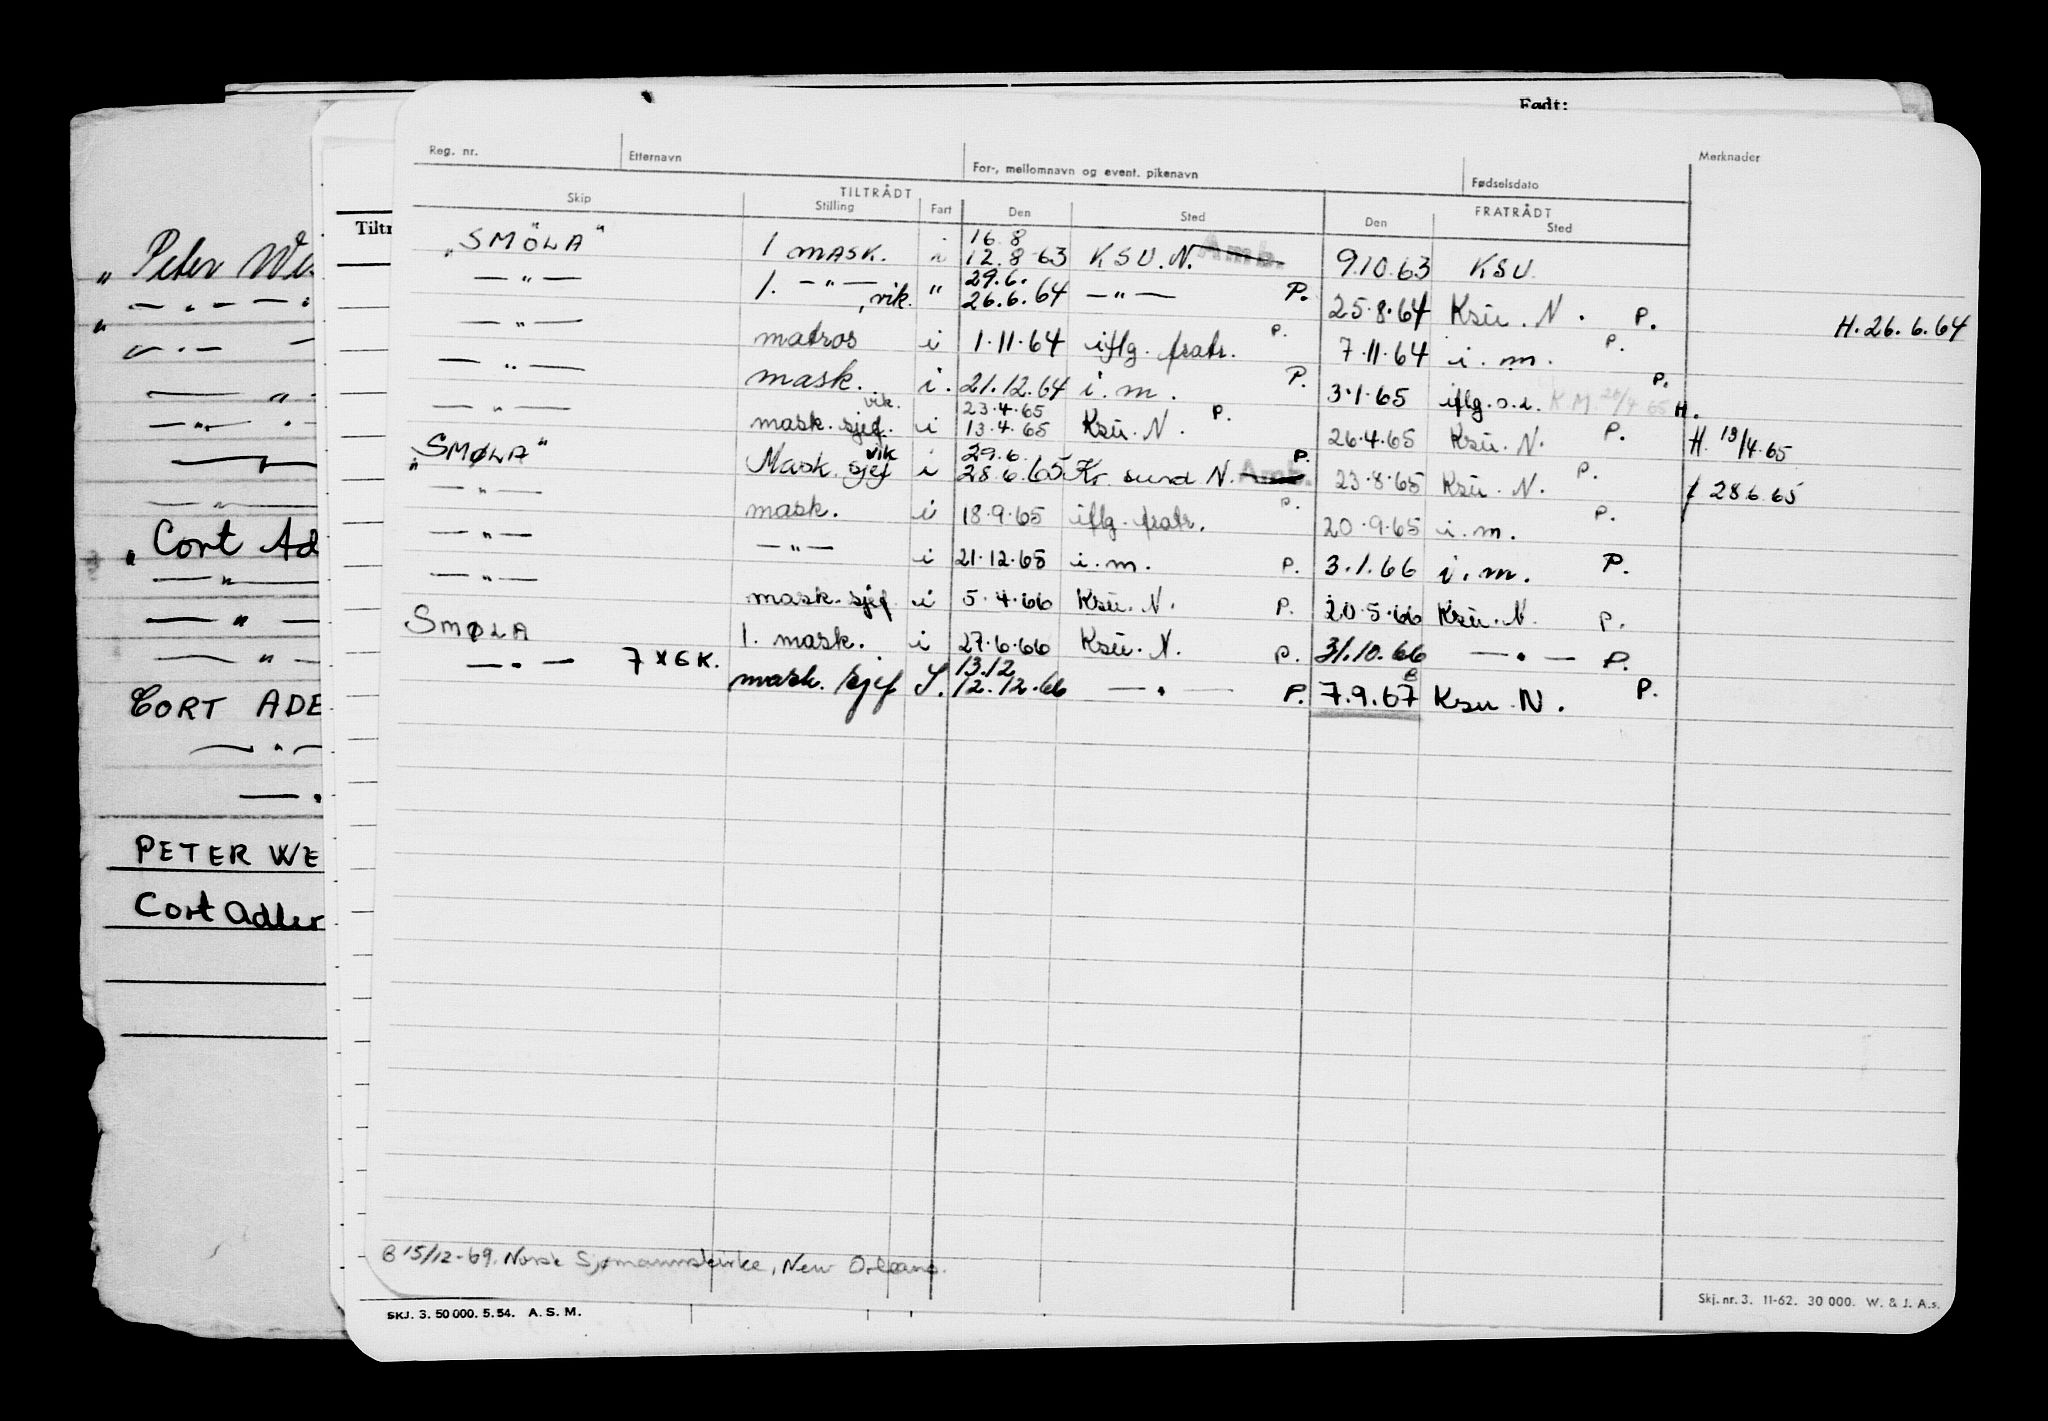 Født:
Reg. nr. Etternavn For-, mellomnavn og event. pikenavn Fødselsdato Merknader
TILTRÅDT FRATRÅDT
Skip Stilling Fart Den Sted Den Sted
16.8
„SMÖLA" 1 MASK. i 12.8-63 KSU.N. Amb. 9.10.63 KSU.
29.6.
— " — 1. — " — , vik. " 26.6.64 — " — P. 25.8.64 Ksu. N. P. H. 26.6.64
— " — matros i 1.11.64 iflg. fratr. P. 7.11.64 i. m. P.
— " — mask. i. 21.12.64 i. m. P. 3.1.65 iflg. o.l. K.M. 26/4 65 P. H.
vik. 23.4.65
— " — mask. sjef. i 13.4.65 Ksu. N. P. 26.4.65 Ksu. N. P. H. 13/4.65
vik 29.6.
„SMØLA" Mask. sjef i 28.6.65 Kr. sund N. Amb. P. 23.8.65 Ksu. N. P. 28.6.65
— " — mask. i 18.9.65 iflg. fratr. P. 20.9.65 i. m. P.
— " — — " — i 21.12.65 i. m. P. 3.1.66 i. m. P.
— " — mask. sjef i 5.4.66 Ksu. N. P. 20.5.66 Ksu. N. P.
SMØLA 1. mask. i 27.6.66 Ksu. N. P. 31.10.66 — " — P.
13.12
— " — 7 X 6 K. mask. sjef S. 12.12.66 — " — P. 7.9.67 B Ksu. N. P.
B 15/12-69. Norsk Sjømannskirke, New Orleans.
Skj. nr. 3. 11-62. 30 000. W. & J. A.s.
SKJ. 3. 50 000. 5. 54. A. S. M.
Tiltr
„ Peter Wes
— " —
„ — " —
— " —
— " —
— " —
„ Cort Ad
— " —
— " —
— " —
CORT ADE
— " —
— "
PETER WE
Cort Adler